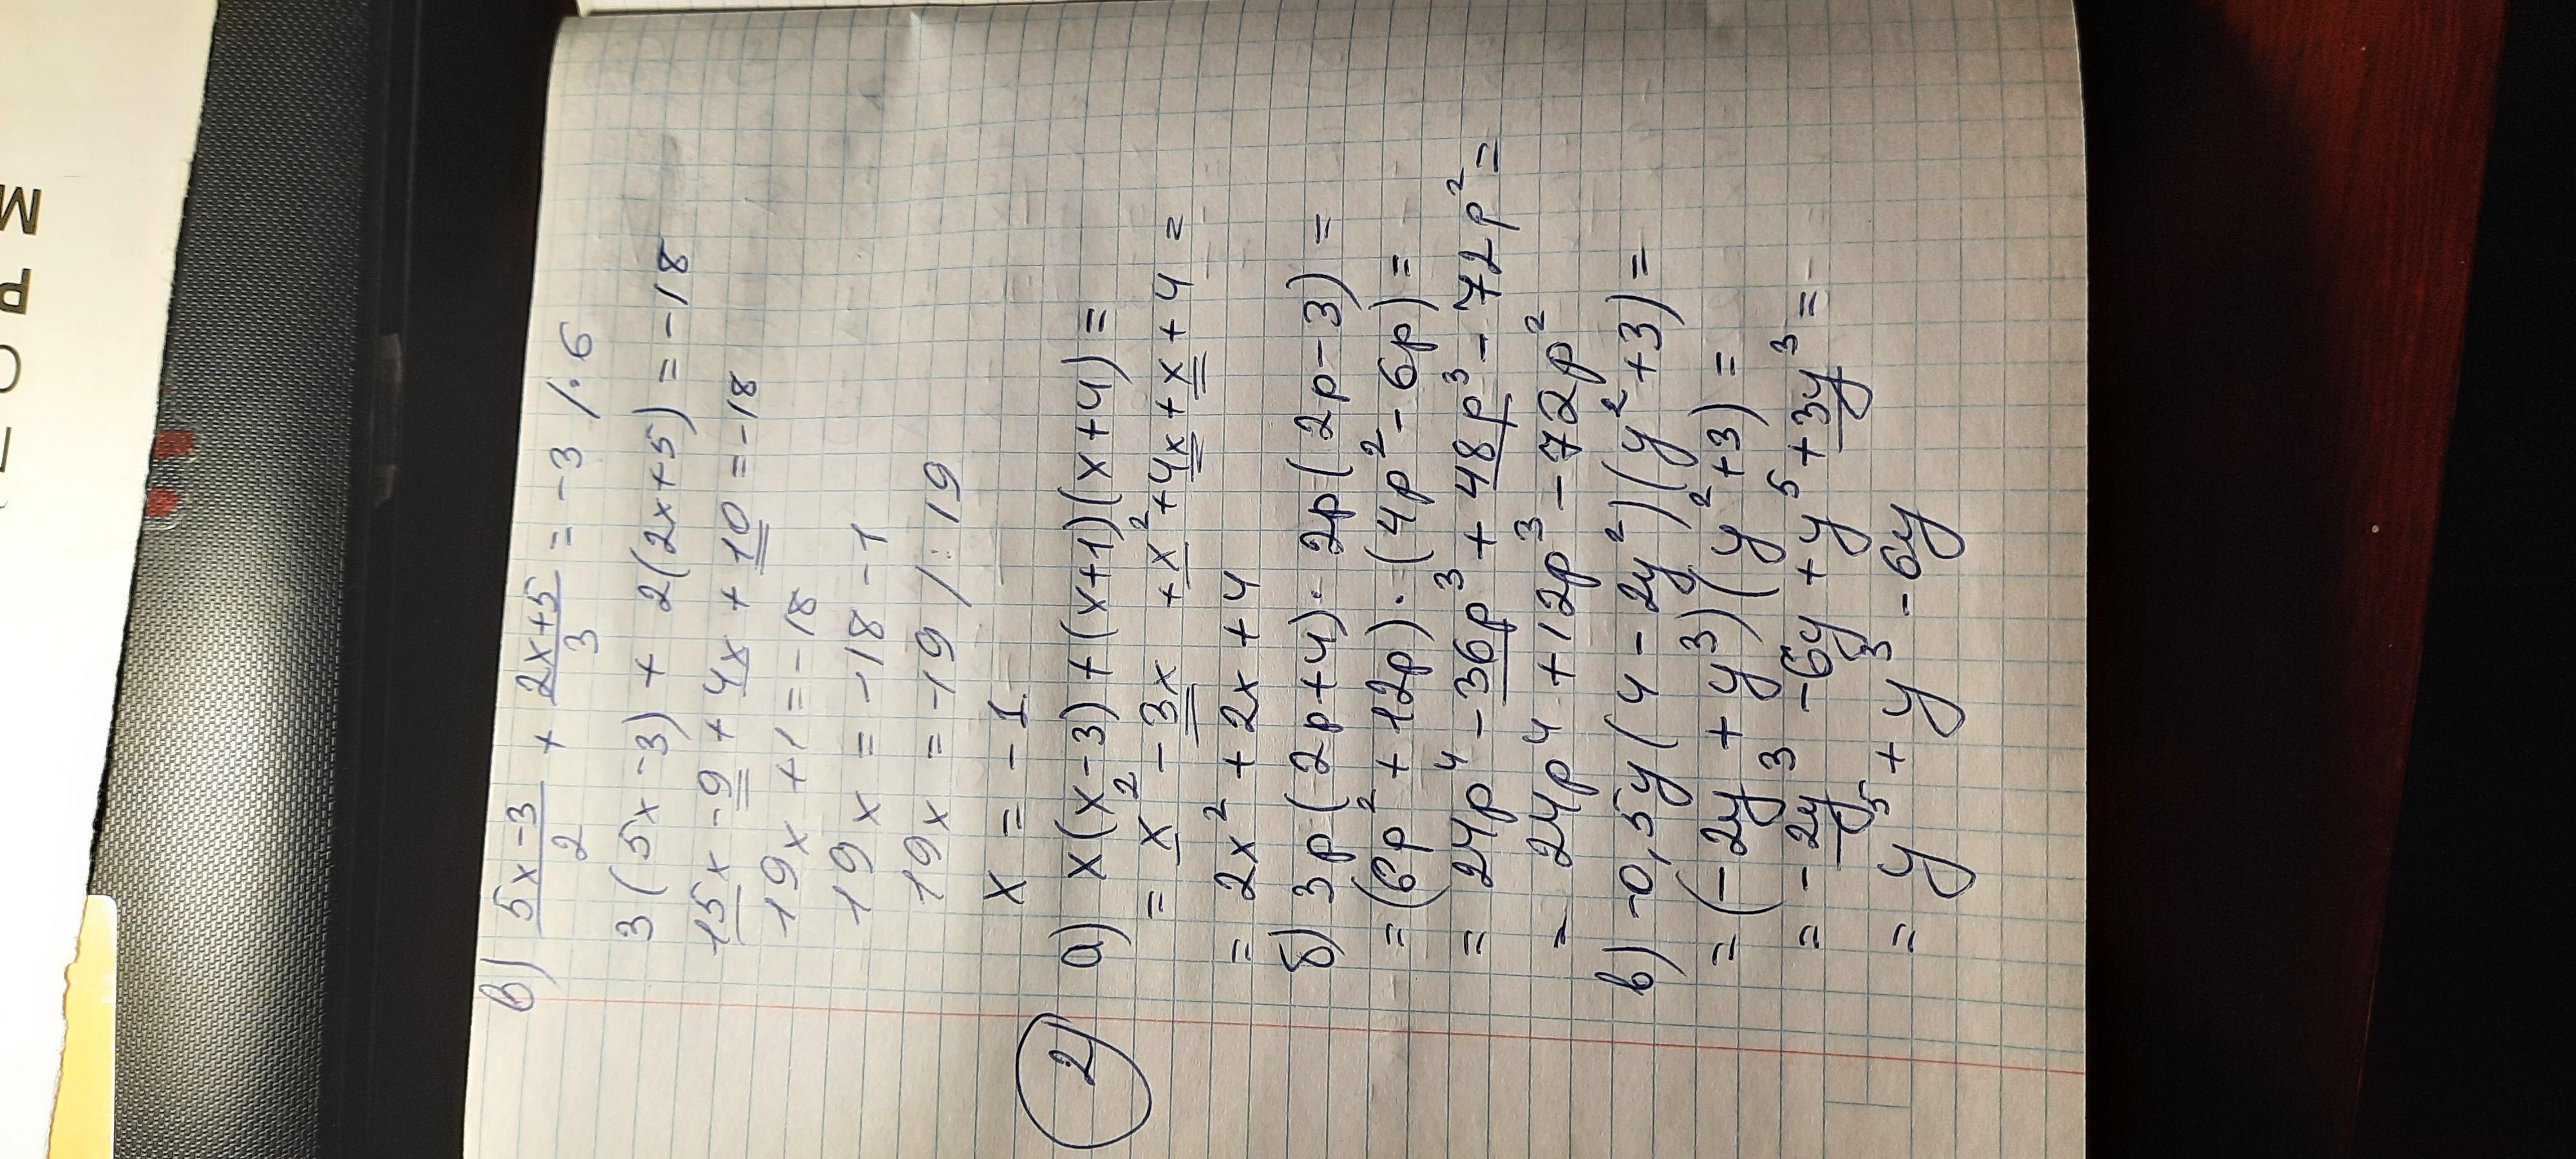 в) (5x-3)/2 + (2x+5)/3 = -3 /·6
3(5x-3) + 2(2x+5) = -18
15x - 9 + 4x + 10 = -18
19x + 1 = -18
19x = -18 - 1
19x = -19 /:19
x = -1
2
а) x(x-3) + (x+1)(x+4) =
= x² - 3x + x² + 4x + x + 4 =
= 2x² + 2x + 4
б) 3p(2p+4)·2p(2p-3) =
= (6p² + 12p)·(4p² - 6p) =
= 24p⁴ - 36p³ + 48p³ - 72p² =
- 24p⁴ + 12p³ - 72p²
в) -0,5y(4 - 2y²)(y² + 3) =
= (-2y + y³)(y² + 3) =
= -2y³ - 6y + y⁵ + 3y³ =
= y⁵ + y³ - 6y
М Р О